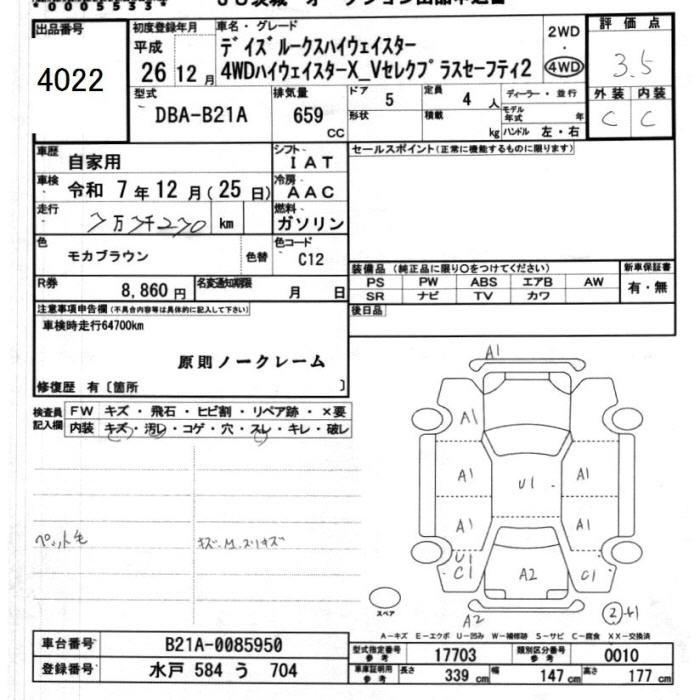 出品番号
4022
初度登録年月
平成
26 12 月
車名・グレード
デイズルークスハイウェイスター
4WDハイウェイスターX_Vセレクプラスセーフティ2
2WD
・
4WD
評価点
3.5
外装 内装
C C
型式
DBA-B21A
排気量
659
CC
ドア 5
定員 4 人
形状
積載 kg
ディーラー・並行
モデル年式 年
ハンドル 左・右
車歴 自家用
シフト IAT
車検 令和 7 年 12 月 (25 日)
冷房 AAC
走行 km
燃料 ガソリン
色 モカブラウン
色替
色コード C12
R券 8,860 円
名変通知期限 月 日
セールスポイント(正常に機能するものに限ります)
装備品 (純正品に限り○をつけてください)
PS PW ABS エアB AW
SR ナビ TV カワ
新車保証書
有・無
後日品
注意事項申告欄(不具合内容等は具体的に記入して下さい)
車検時走行64700km
原則ノークレーム
修復歴 有〔箇所 〕
検査員記入欄
FW キズ・飛石・ヒビ割・リペア跡・×要
内装 キズ・汚レ・コゲ・穴・スレ・キレ・破レ
ペット毛
キズ.M.スリキズ
A1
A1
A1 A1
U1
A1 A1
U1
C1 A2 C1
A2
スペア
A－キズ E－エクボ U－凹み W－補修跡 S－サビ C－腐食 XX－交換済
車台番号 B21A-0085950
登録番号 水戸 584 う 704
型式指定番号 参考 17703
類別区分番号 参考 0010
車庫証明用 参考 長さ 339 cm 幅 147 cm 高さ 177 cm